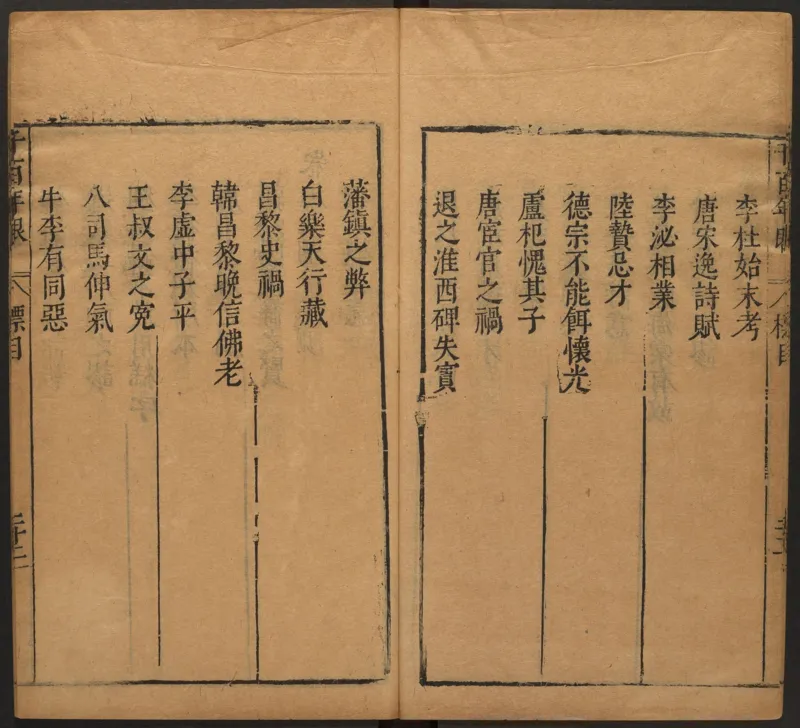 李杜始末考
唐宋逸詩賦
李泌相業
陸贄忌才
德宗不能餌懷光
盧杞愧其子
唐宦官之禍
退之淮西碑失實
藩鎮之弊
白樂天行藏
昌黎史禍
韓昌黎晚信佛老
李虛中子平
王叔文之寃
八司馬伸氣
牛李有同惡
千百年眼
標目